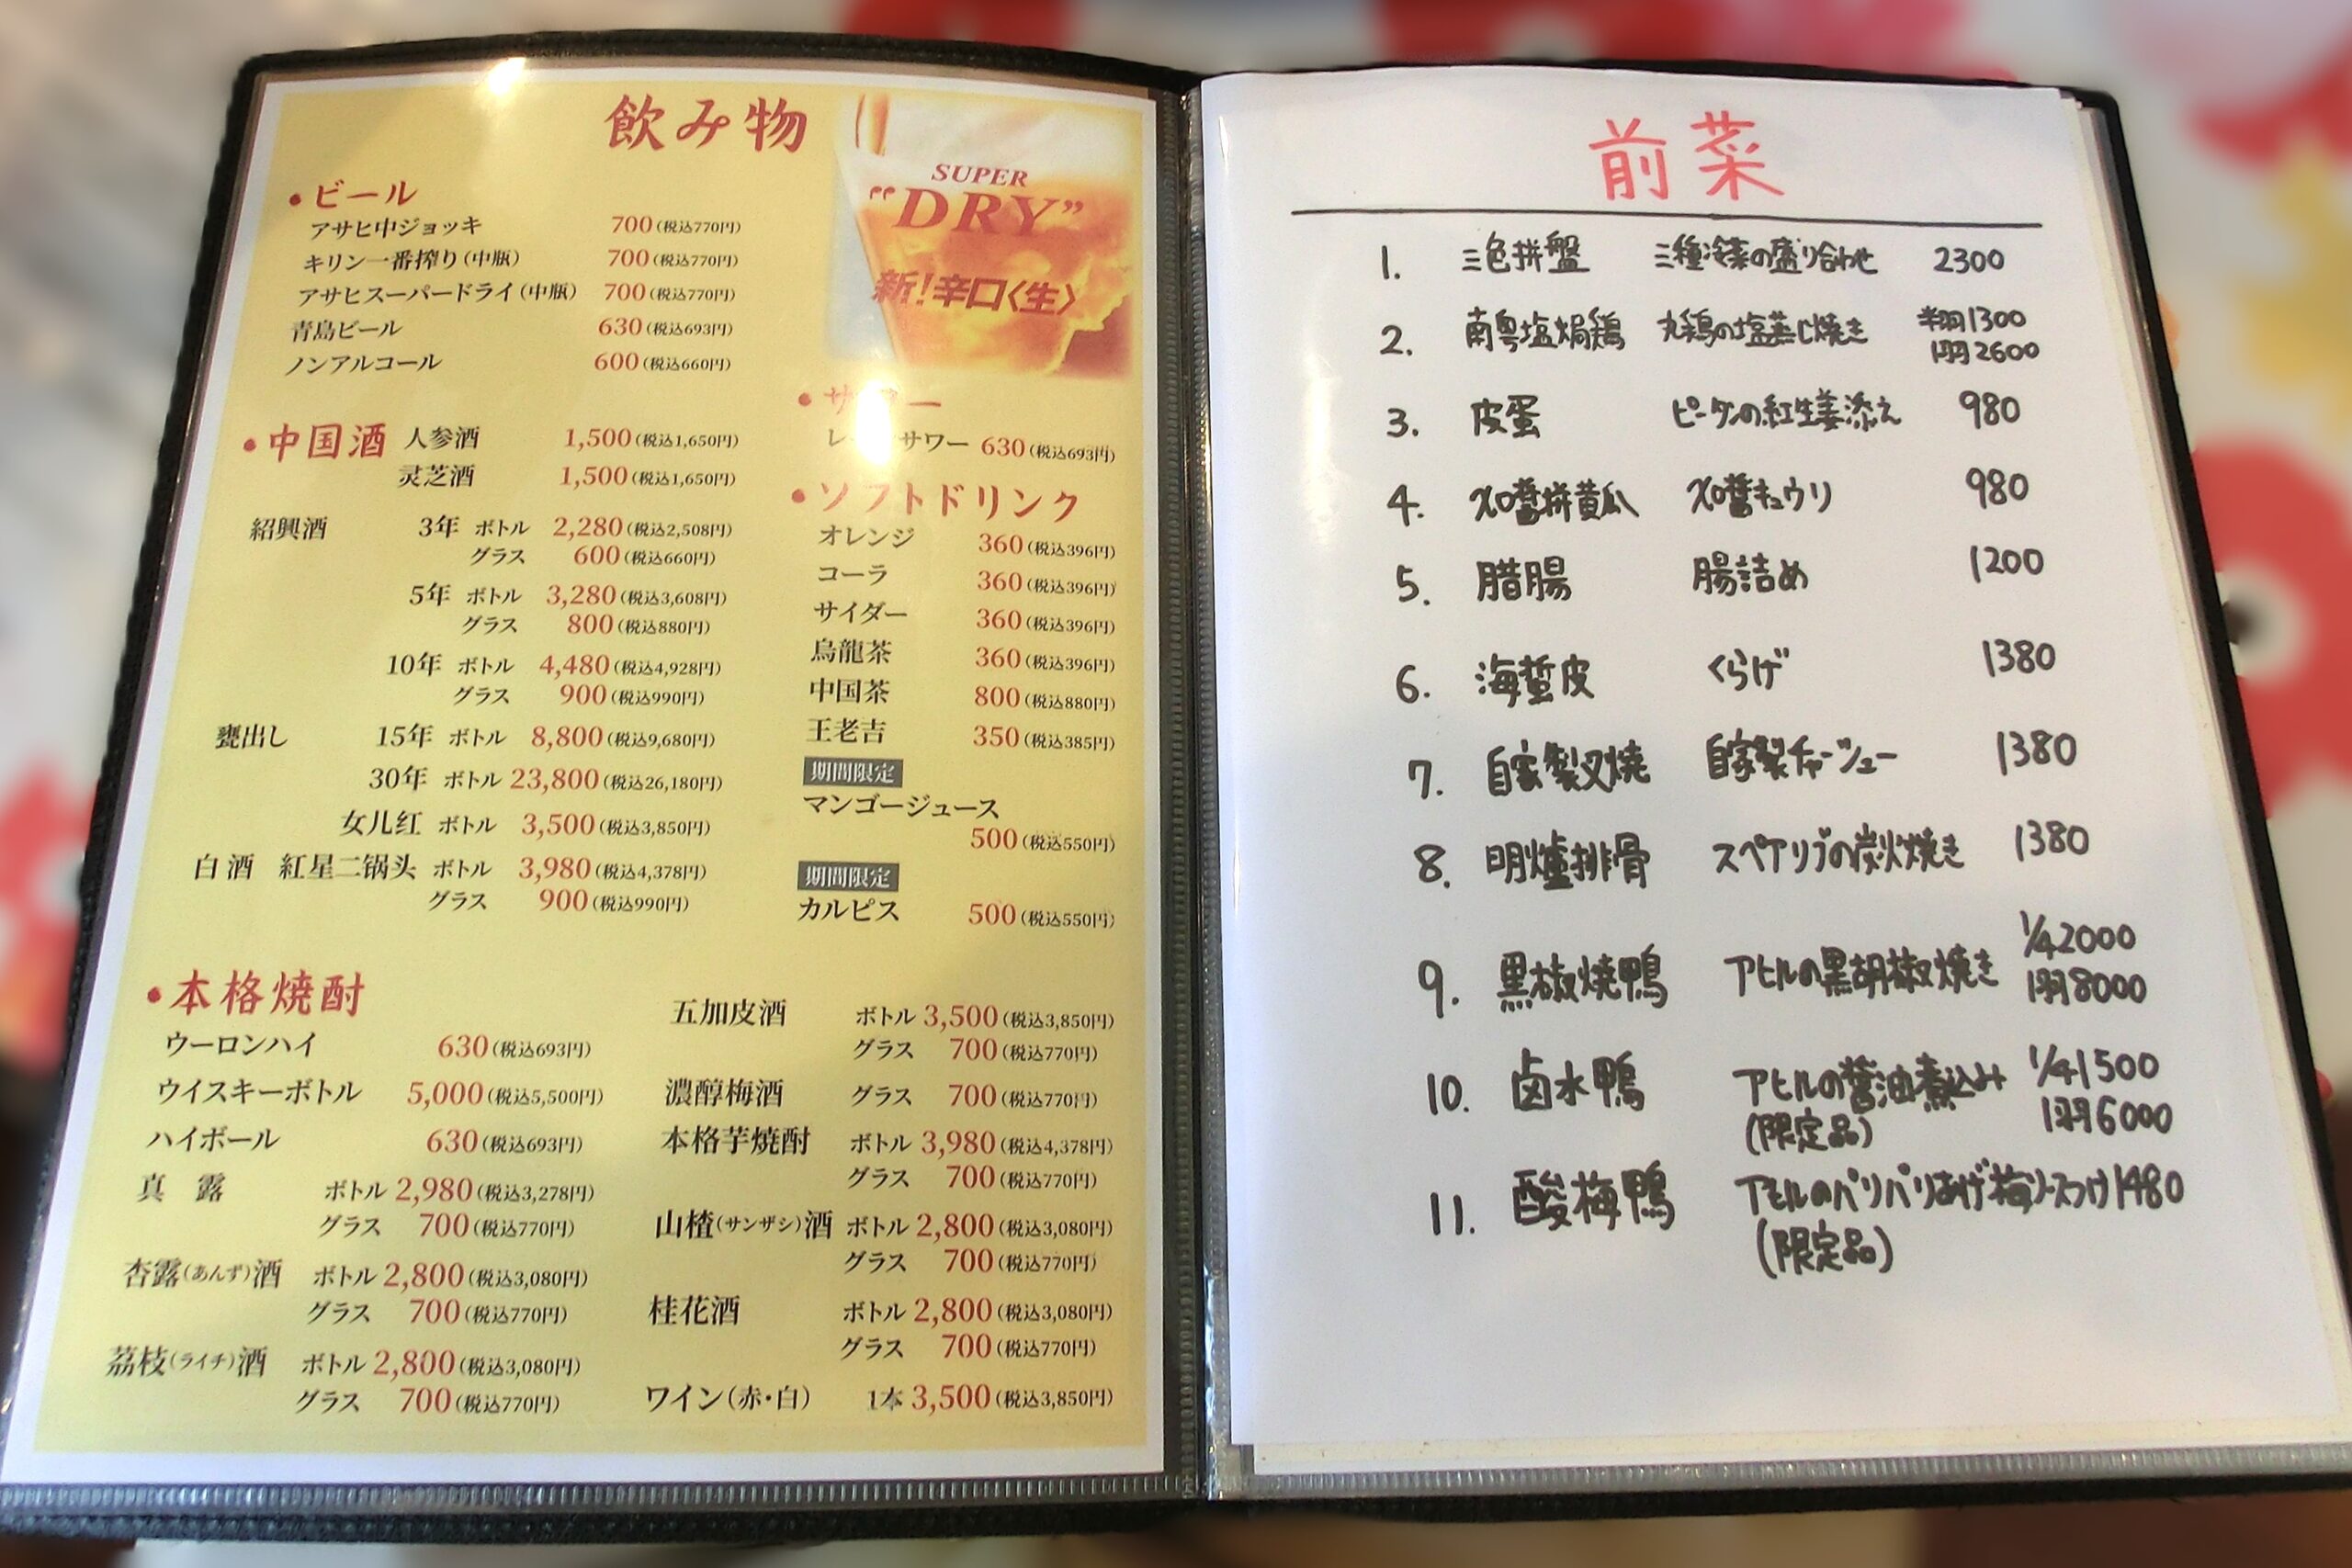 飲み物
SUPER
"DRY"
新!辛口〈生〉
・ビール
アサヒ中ジョッキ 700(税込770円)
キリン一番搾り(中瓶) 700(税込770円)
アサヒスーパードライ(中瓶) 700(税込770円)
青島ビール 630(税込693円)
ノンアルコール 600(税込660円)
・中国酒 人参酒 1,500(税込1,650円)
灵芝酒 1,500(税込1,650円)
紹興酒 3年 ボトル 2,280(税込2,508円)
グラス 600(税込660円)
5年 ボトル 3,280(税込3,608円)
グラス 800(税込880円)
10年 ボトル 4,480(税込4,928円)
グラス 900(税込990円)
甕出し 15年 ボトル 8,800(税込9,680円)
30年 ボトル 23,800(税込26,180円)
女儿红 ボトル 3,500(税込3,850円)
白酒 紅星二锅头 ボトル 3,980(税込4,378円)
グラス 900(税込990円)
サワー 630(税込693円)
・ソフトドリンク
オレンジ 360(税込396円)
コーラ 360(税込396円)
サイダー 360(税込396円)
烏龍茶 360(税込396円)
中国茶 800(税込880円)
王老吉 350(税込385円)
期間限定
マンゴージュース
500(税込550円)
期間限定
カルピス 500(税込550円)
・本格焼酎
ウーロンハイ 630(税込693円)
ウイスキーボトル 5,000(税込5,500円)
ハイボール 630(税込693円)
真 露 ボトル 2,980(税込3,278円)
グラス 700(税込770円)
杏露(あんず)酒 ボトル 2,800(税込3,080円)
グラス 700(税込770円)
荔枝(ライチ)酒 ボトル 2,800(税込3,080円)
グラス 700(税込770円)
五加皮酒 ボトル 3,500(税込3,850円)
グラス 700(税込770円)
濃醇梅酒 グラス 700(税込770円)
本格芋焼酎 ボトル 3,980(税込4,378円)
グラス 700(税込770円)
山楂(サンザシ)酒 ボトル 2,800(税込3,080円)
グラス 700(税込770円)
桂花酒 ボトル 2,800(税込3,080円)
グラス 700(税込770円)
ワイン(赤・白) 1本 3,500(税込3,850円)
前菜
1. 三色拼盤 三種冷菜の盛り合わせ 2300
2. 南粤塩焗鶏 丸鶏の塩蒸し焼き 半羽1300
1羽2600
3. 皮蛋 ピータンの紅生姜添え 980
4. XO醬拼黄瓜 XO醬キュウリ 980
5. 腊腸 腸詰め 1200
6. 海蜇皮 くらげ 1380
7. 自家製叉焼 自家製チャーシュー 1380
8. 明爐排骨 スペアリブの炭火焼き 1380
9. 黒椒焼鴨 アヒルの黒胡椒焼き 1/4 2000
1羽8000
10. 卤水鴨 アヒルの醤油煮込み 1/4 1500
(限定品) 1羽6000
11. 酸梅鴨 アヒルのパリパリあげ梅ソースつけ 1480
(限定品)